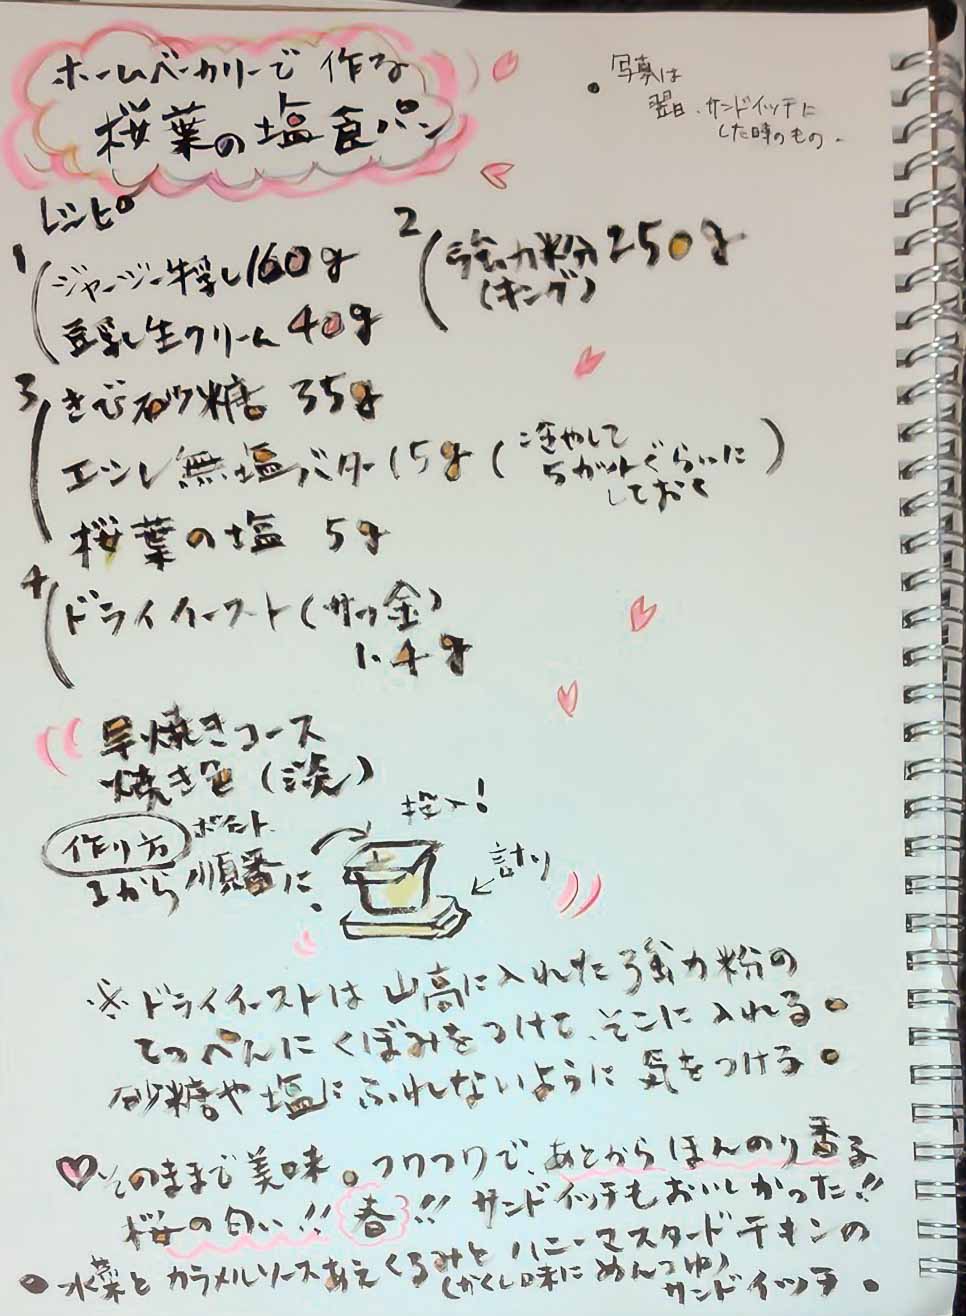 ホームベーカリーで 作る
桜葉の塩食パン
・写真は
翌日、サンドイッチに
した時のもの。
レシピ
1
ジャージー牛乳160g
豆乳生クリーム 40g
2
強力粉250g
(キング)
3
きび砂糖 35g
エシレ無塩バター15g (冷やして
5ガットぐらいに
しておく)
桜葉の塩 5g
4
ドライイースト(サフ金)
1.4g
早焼きコース
焼き色(淡)
作り方 ポイント
1から 順番に。
投入!
計り
※ドライイーストは 山高に入れた強力粉の
てっぺんに くぼみをつけて、そこに入れる。
砂糖や塩にふれないように 気をつける。
♡そのままで美味。フワフワで、あとからほんのり香る
桜の匂い!! 春!! サンドイッチもおいしかった!!
●水菜と カラメルソースあえくるみと ハニーマスタードチキンの
(かくし味に めんつゆ) サンドイッチ。